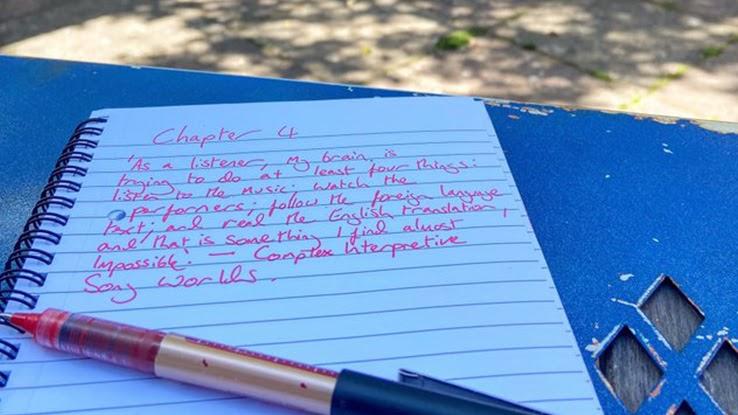 Chapter 4
'As a listener, my brain is
trying to do at least four things:
listen to the music; watch the
performers; follow the foreign language
text; and read the English translation,
and that is something I find almost
impossible.' — Complex Interpretive
Song Worlds.